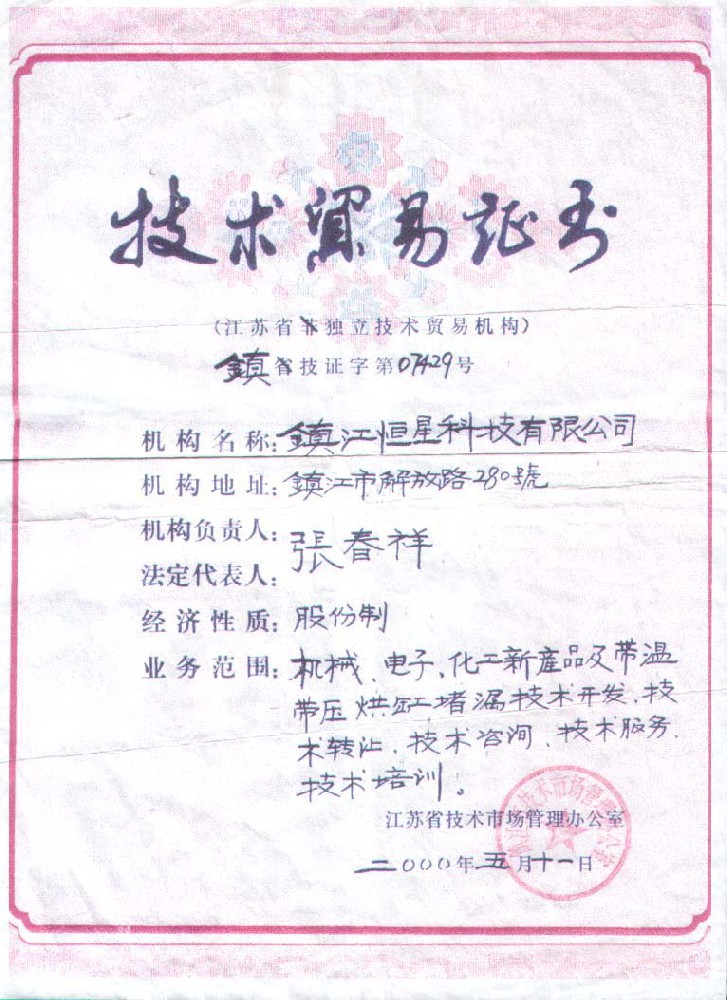 技术贸易证书
(江苏省非独立技术贸易机构)
鎮省技证字第07429号
机构名称:鎮江恒星科技有限公司
机构地址:鎮江市解放路280號
机构负责人:
張春祥
法定代表人:
经济性质:股份制
业务范围:机械、电子、化工新產品及带温
带压烘缸堵漏技术开发、技
术转让、技术咨询、技术服务、
技术培训。
江苏省技术市场管理办公室
二000年五月十一日